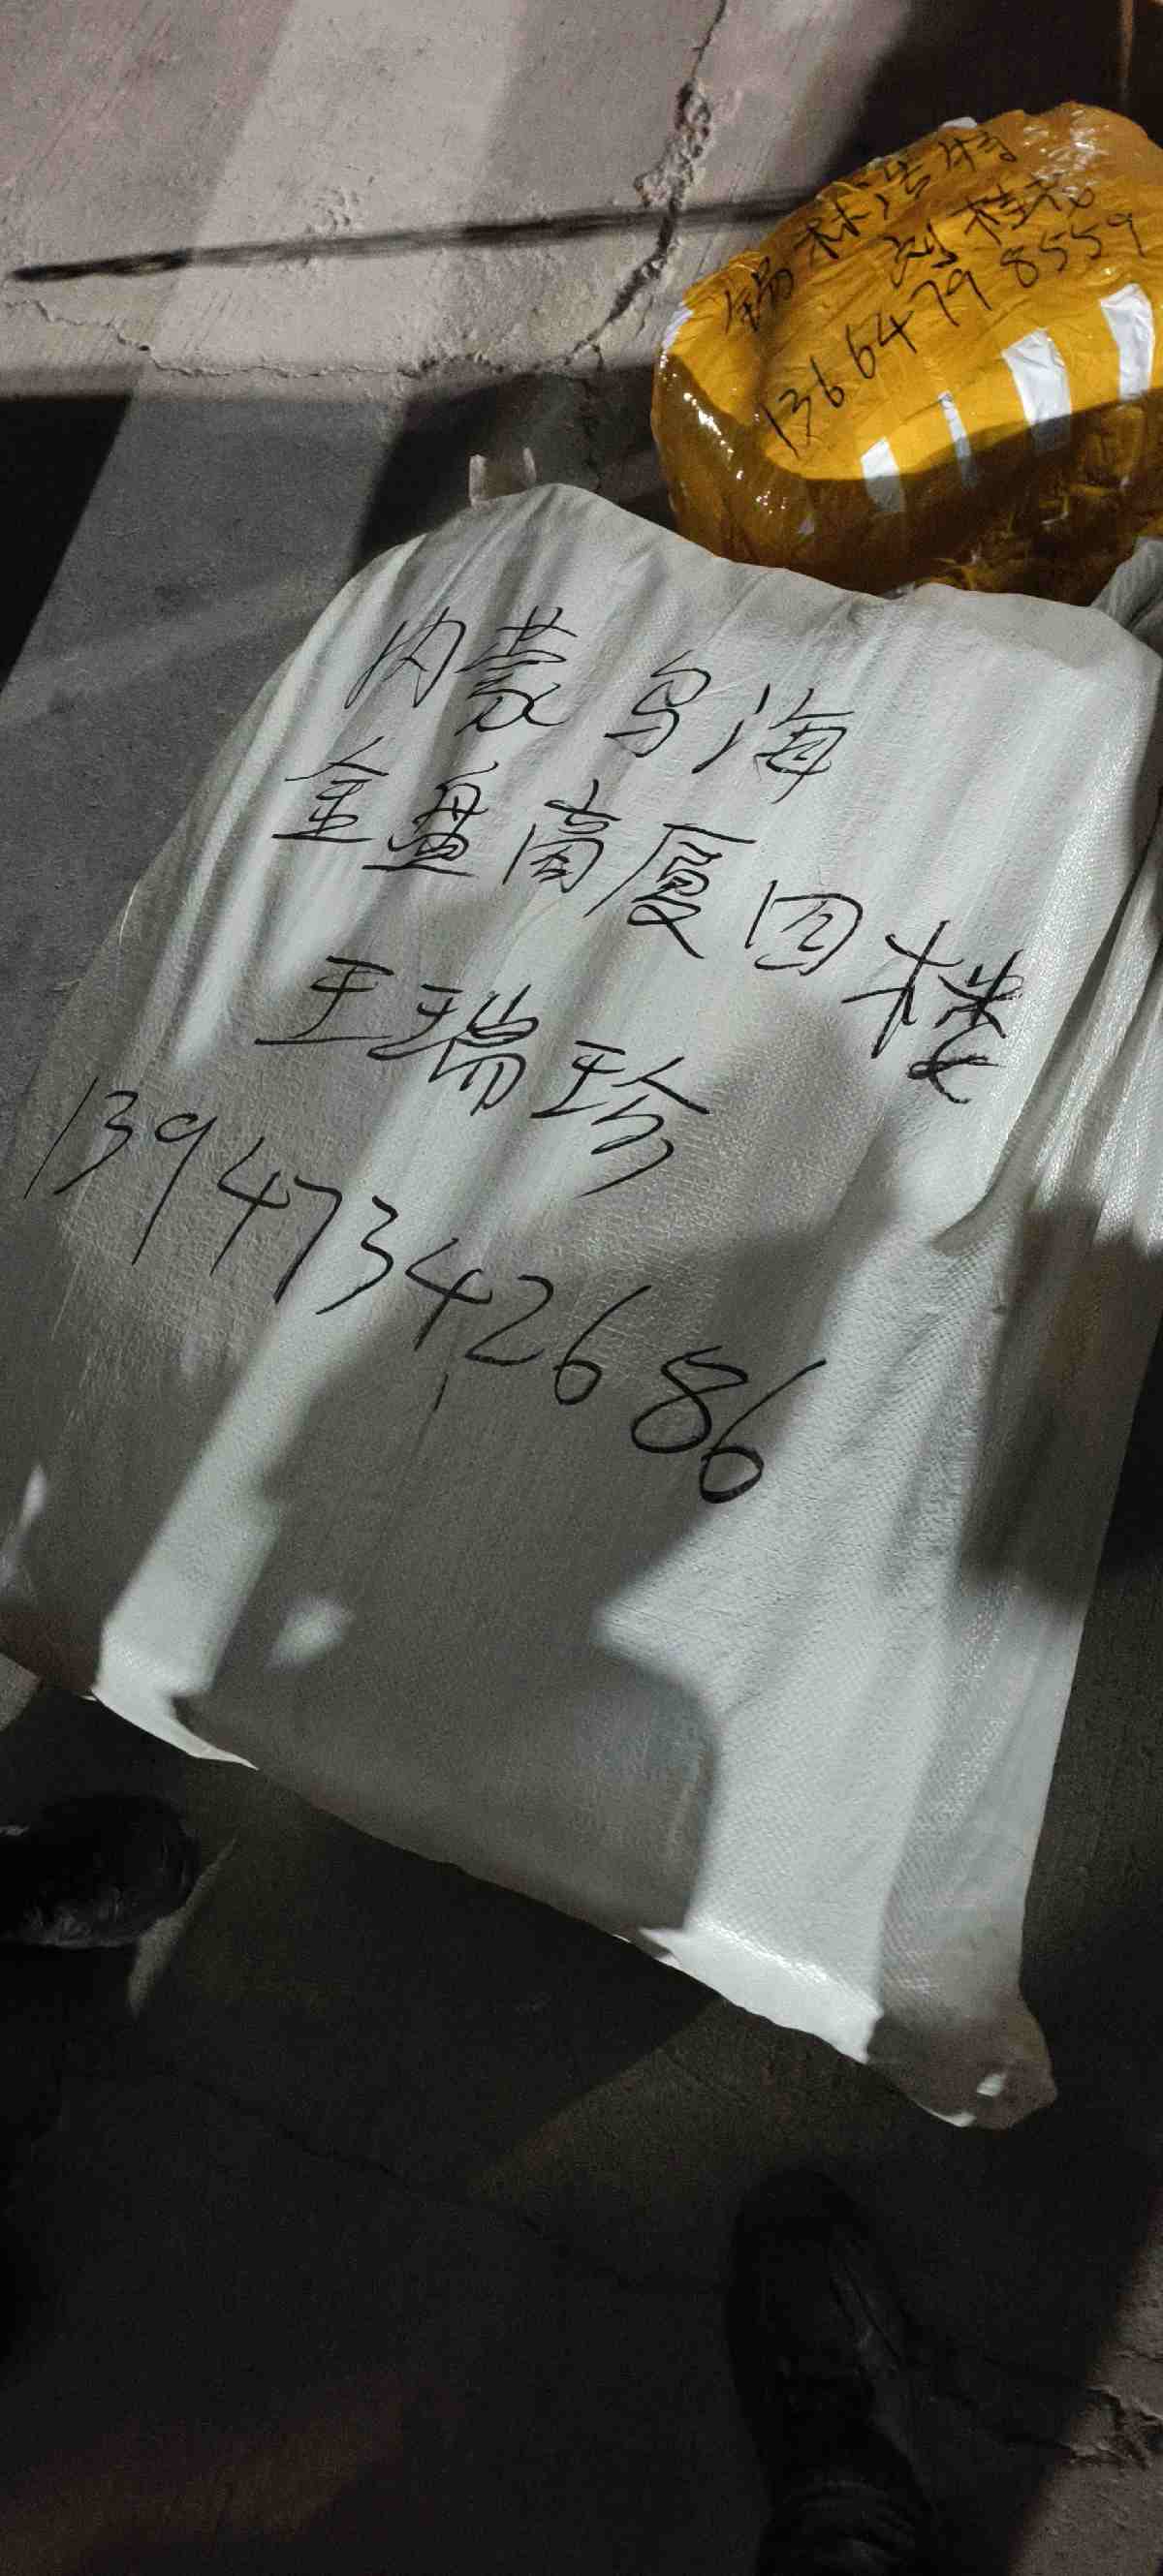 锡林浩特
刘桂花
13664798559
内蒙乌海
金盘商厦四楼
王瑞珍
13947342686